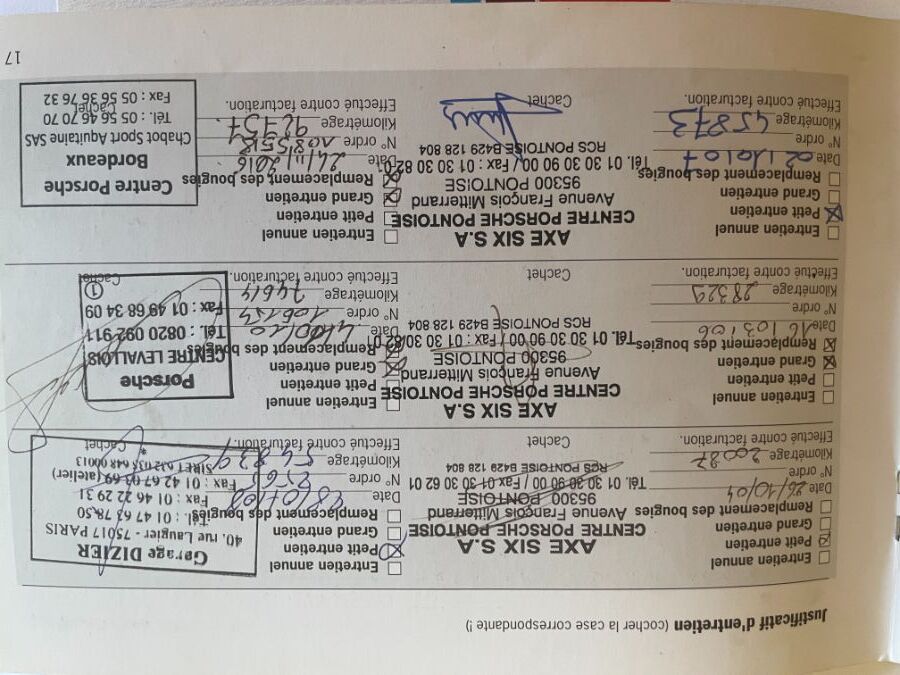 Justificatif d'entretien (cocher la case correspondante !)
Entretien annuel
Petit entretien
Grand entretien
Remplacement des bougies
Date 26/10/04
N° ordre
Kilométrage 20087
Effectué contre facturation.
AXE SIX S.A
CENTRE PORSCHE PONTOISE
Avenue François Mitterrand
95300 PONTOISE
Tél. 01 30 30 90 00 / Fax 01 30 30 62 01
RCS PONTOISE B429 128 804
Cachet
Entretien annuel
Petit entretien
Grand entretien
Remplacement des bougies
Date
N° ordre 2565
Kilométrage 54839
Effectué contre facturation.
Garage DIZIER
40, rue Laugier - 75017 PARIS
Tél. : 01 47 63 78.50
Fax : 01 46 22 29 31
Fax : 01 42 67 03 69 (atelier)
SIRET 632 035 648 00013
Cachet
Entretien annuel
Petit entretien
Grand entretien
Remplacement des bougies
Date 16/03/06
N° ordre
Kilométrage 28329
Effectué contre facturation.
AXE SIX S.A
CENTRE PORSCHE PONTOISE
Avenue François Mitterrand
95300 PONTOISE
Tél. 01 30 30 90 00 / Fax : 01 30 30 82 01
RCS PONTOISE B429 128 804
Cachet
Entretien annuel
Petit entretien
Grand entretien
Remplacement des bougies
Date
N° ordre
Kilométrage 74614
Effectué contre facturation.
Porsche
CENTRE LEVALLOIS
Tél. : 0820 092 911
Fax : 01 49 68 34 09
1
Cachet
Entretien annuel
Petit entretien
Grand entretien
Remplacement des bougies
Date
N° ordre
Kilométrage 45873
Effectué contre facturation.
AXE SIX S.A
CENTRE PORSCHE PONTOISE
Avenue François Mitterrand
95300 PONTOISE
Tél. 01 30 30 90 00 / Fax : 01 30 30 82 01
RCS PONTOISE B429 128 804
Cachet
Entretien annuel
Petit entretien
Grand entretien
Remplacement des bougies
Date 24/11/2016
N° ordre
Kilométrage 92757
Effectué contre facturation.
Centre Porsche
Bordeaux
Chabot Sport Aquitaine SAS
Tél. : 05 56 46 70 70
Fax : 05 56 36 76 32
Cachet
17